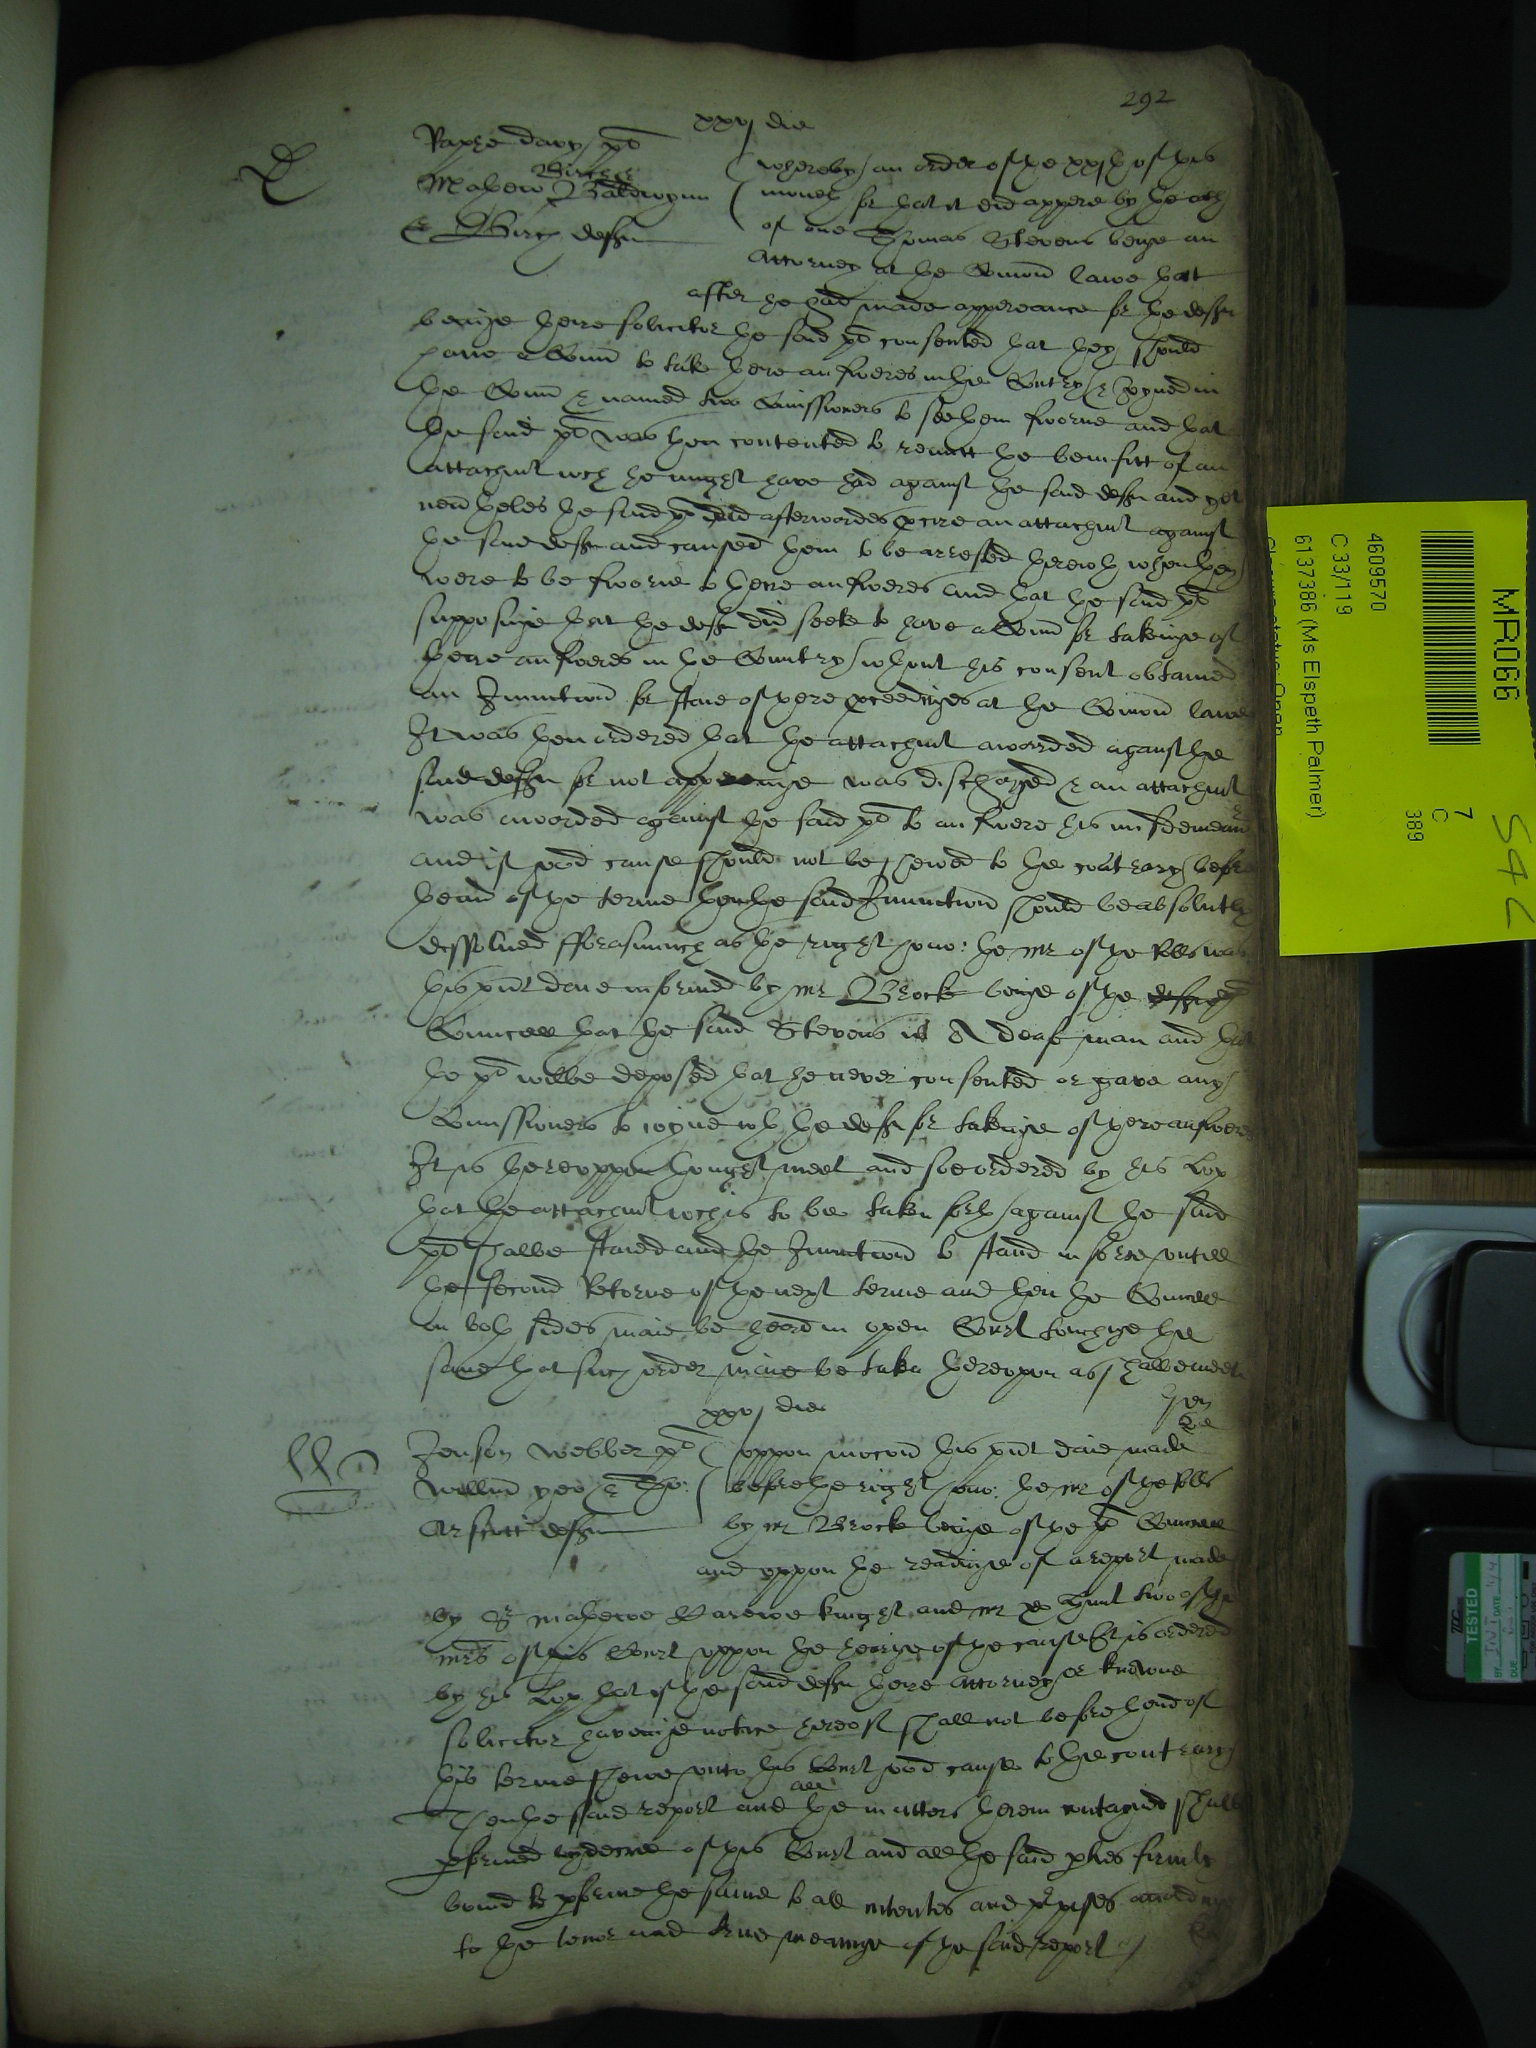 292
xxvj die
D
Rayse davy pl
Mathew Baldwynn
& Birch defts
Whereby an order of the xxjth of this
moneth for that it did appere by the oth
of one Thomas Stevens beinge an
Attorney at the Comon lawe that
after he had made apperance for the defts
beinge there solicitor the said pl consented that they should
have a Comn to take there answeres in the Cuntry & joyned in
the Comn & named two Comissioners to see them sworne and that
the said pl was then contented to remitt the benifitt of an
attachmt wch he might have had against the said defts and yet
nevertheles the said pl did afterwardes pcure an attachmt against
the said defts and caused them to be arrested therewth when they
were to be sworne to there answeres and that the said pl
supposinge that the defts did seeke to have a Comn for takinge of
there answeres in the Countrey wthout his consent obtained
an Iniunction for staie of there pceedinges at the Comon lawe
It was then ordered that the attachmt awarded against the
said defts for not apperinge was discharged & an attachmt
was awarded against the said pl to answere his misdemeanr
and if good cause should not be shewed to the contrary before
thend of the terme then the said Iniunction should be absolutly
dissolued fforasmuch as the right hono: the Mr of the Rlls was
this pnt daie informed by Mr Brock beinge of the pl
Councell that the said Stevens is A deaf man and that
the pl wilbe deposed that he never consented or gave any
Comissioners to ioyne wth the defts for takinge of there answeres
It is thereuppon thought meet and soe ordered by his Lop
that the attachmt wch is to be taken forth against the said
pl shalbe staied and the Iniunction to stand in force untill
the second Retorne of the next terme and then the Councell
on both sides maie be heard in open Court touchinge the
same that such order maie be taken thereupon as shalbe meete
xxvj die
W
Jenson Webber pl
Willm yeo & Tho:
Arscott defts
Uppon mocon this pnt daie made
before the right hono: the Mr of the Rlls
by Mr Brock beinge of the pl Councell
and uppon the readinge of a report made
by Sr Mathewe Carewe knight and Mr Hunt two of the
Mrs of this Court uppon the hearinge of the cause It is ordered
by his Lop that if the said defts there attorney or knowne
solicitor havinge notice hereof shall not before thend of
this terme shewe unto this Court good cause to the contrary
Then the said report and all the matters therein contayned shalbe
pformed by decree of this Court and all the said pties firmly
bound to pforme the same to all intentes and pposes accordinge
to the tenor and true meaninge of the said report
MR066
4609570
C 33/119
6137386 (Ms Elspeth Palmer)
7
C
389
TESTED